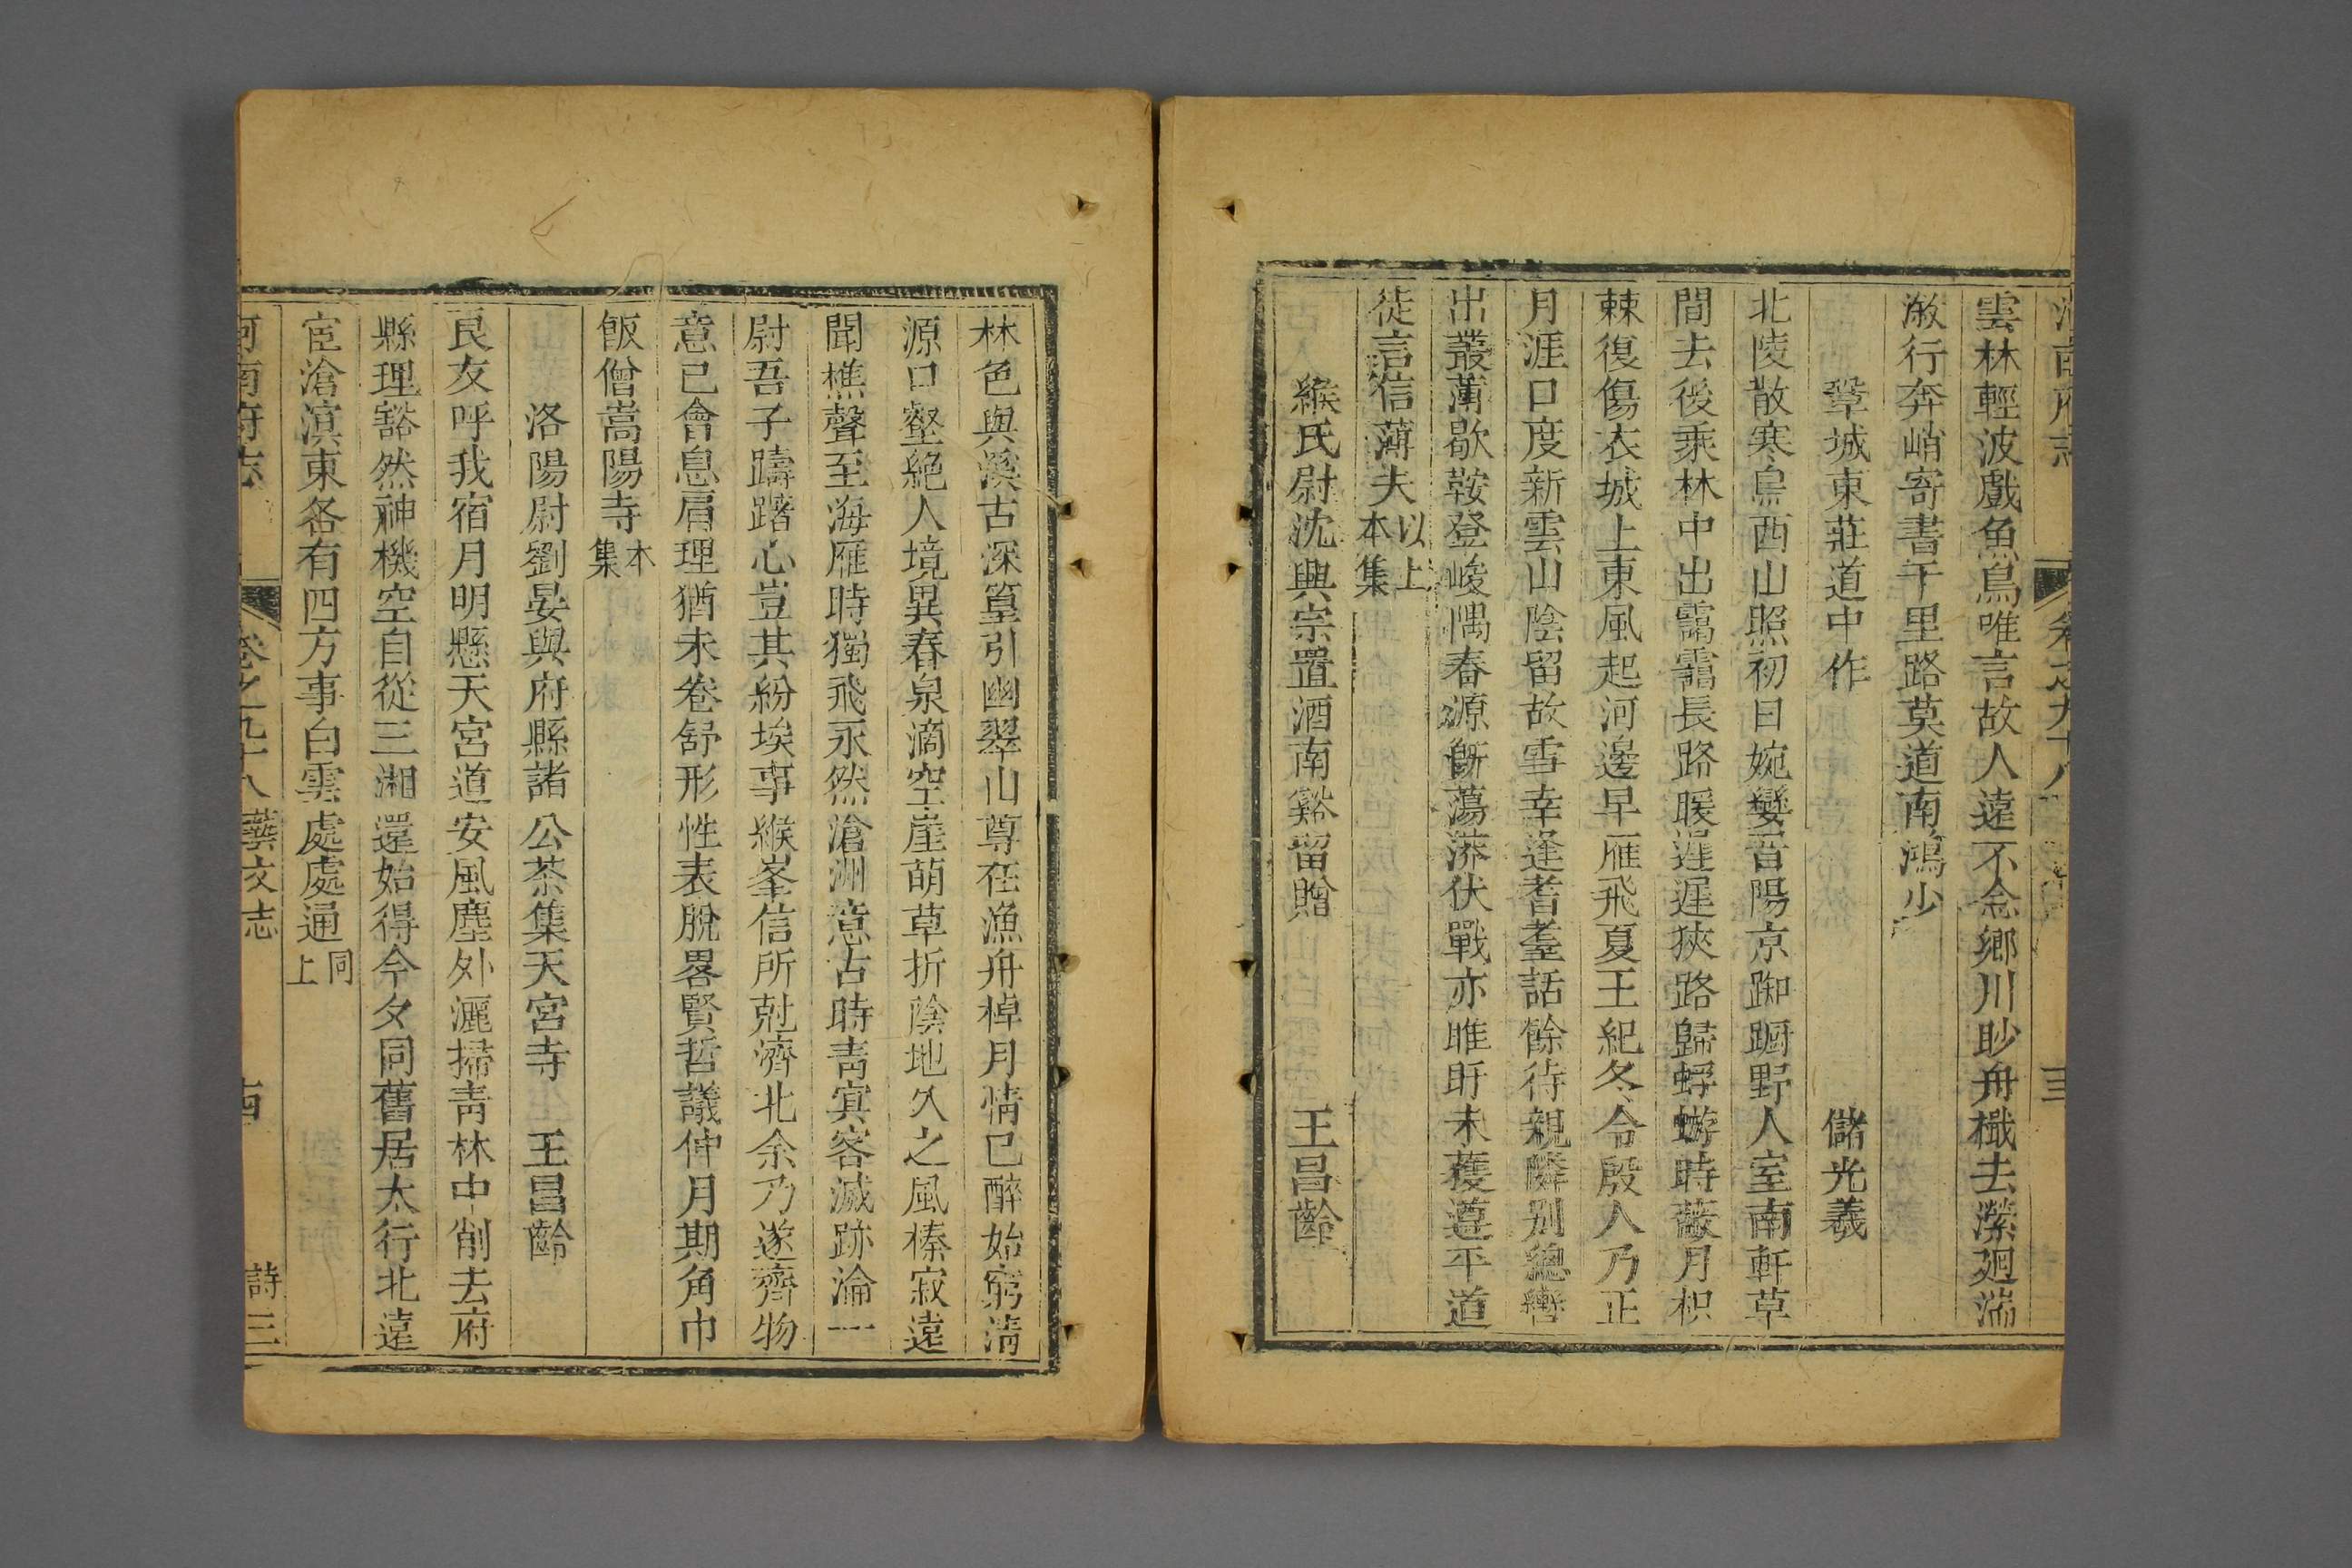 雲林輕波戲魚鳥唯言故人遠不念鄉川眇舟檝去瀠廻湍
潊行奔峭寄書千里路莫道南鴻少
鞏城東莊道中作 儲光羲
北陵散寒鳥西山照初日婉孌晉陽京踟蹰野人室南軒草
間去後乘林中出靄靄長路暖遲遲狹路歸蜉蝣時蔽月枳
棘復傷衣城上東風起河邊早雁飛夏王紀冬令殷人乃正
月涯口度新雲山陰留故雪幸逢耆耋話餘待親隣別總轡
出叢薄歇鞍登峻隅春源既蕩漭伏戰亦睢盱未蒦遵平道
徒言信薄夫以上本集
緱氏尉沈興宗置酒南谿留贈 王昌齡
林色與溪古深篁引幽翠山尊在漁舟棹月情已醉始窮淸
源口壑絕人境異春泉滴空崖萌草折陰地久之風榛寂遠
聞樵聲至海雁時獨飛永然滄洲意古時靑冥客滅跡淪一
尉吾子躊躇心豈其紛埃事緱峯信所尅濟北余乃遂齊物
意已會息肩理猶未卷舒形性表脫畧賢哲議仲月期角巾
飯僧嵩陽寺本集
洛陽尉劉晏與府縣諸公茶集天宮寺 王昌齡
良友呼我宿月明懸天宮道安風塵外灑掃靑林中削去府
縣理豁然神機空自從三湘還始得今夕同舊居太行北遠
宦滄溟東各有四方事白雲處處通同上
河南府志 卷之九十八 藝文志 詩三